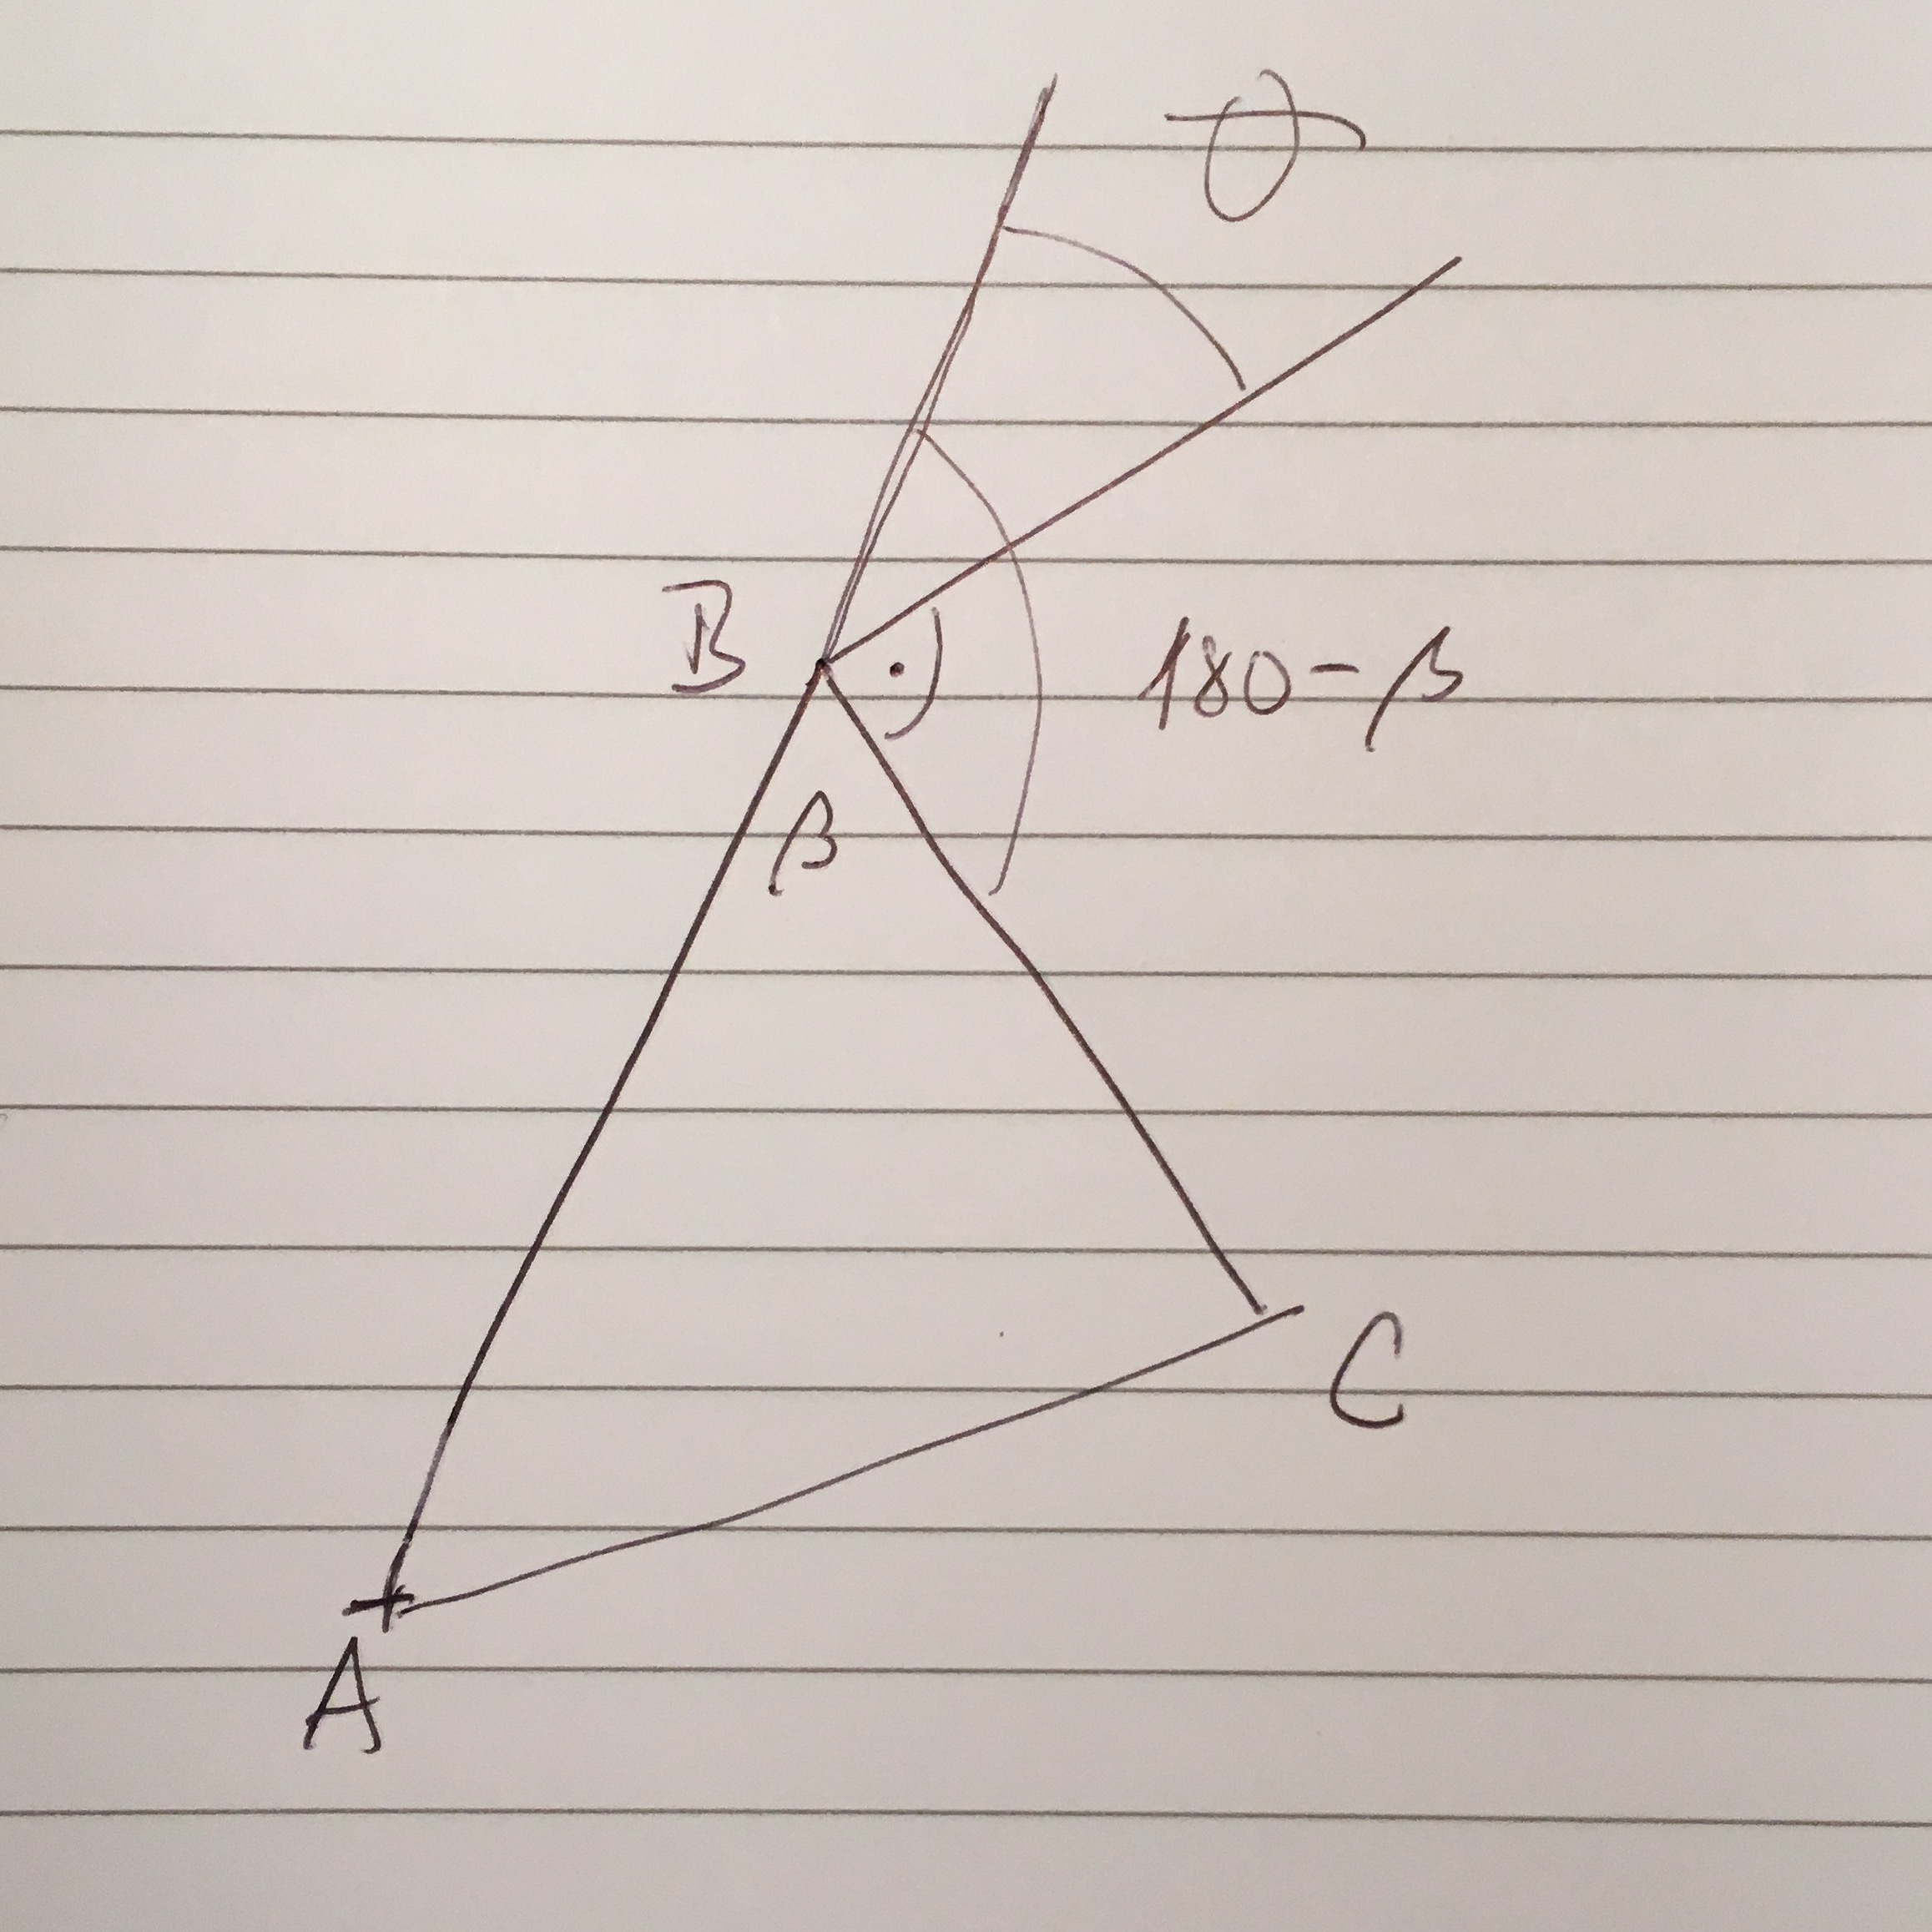 θ
B
180-β
β
C
A